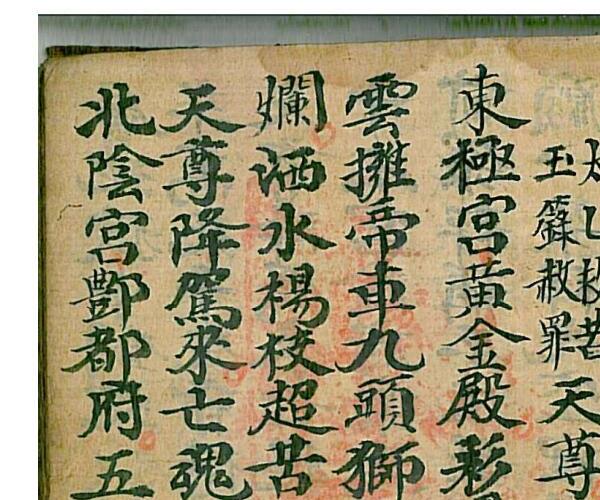 太乙救苦
玉籙赦罪
天尊
東極宮黃金殿彩
雲擁帝車九頭獅
爛洒水楊枝超苦
天尊降駕來亡魂
北陰宮酆都府五